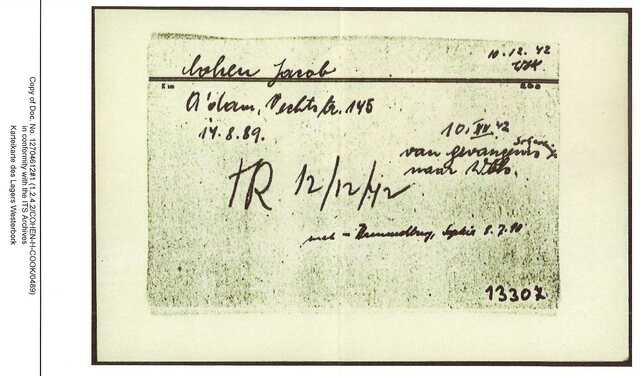 10.12.42
Cohen Jacob
A'dam, Vechtstr. 145
14.8.89.
10.XII.42
van gevangenis
naar Wbk.
TR 12/12/42
Sophie 8.7.90
13307
Copy of Doc. No. 12704612#1 (1.2.4.2/COHEN-H-COOK/0489)
in conformity with the ITS Archives
Karteikarte des Lagers Westerbork